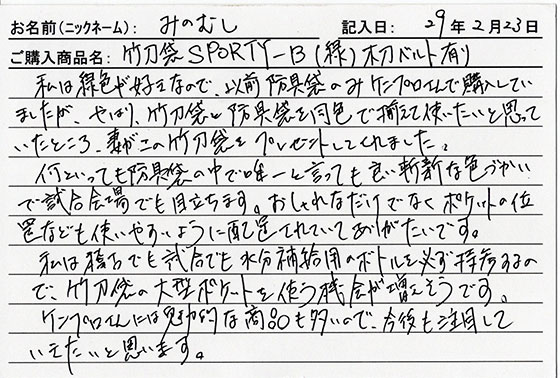 お名前(ニックネーム): みのむし 記入日: 29年2月23日
ご購入商品名: 竹刀袋SPORTY-B(緑)木刀ベルト有り
私は緑色が好きなので、以前防具袋のみケンプロさんで購入してい
ましたが、やはり、竹刀袋と防具袋を同色で揃えて使いたいと思って
いたところ、妻がこの竹刀袋をプレゼントしてくれました。
何といっても防具袋の中で唯一と言っても良い斬新な色づかい
で試合会場でも目立ちます。おしゃれなだけでなくポケットの位
置なども使いやすいように配置されていてありがたいです。
私は稽古でも試合でも水分補給用のボトルを必ず持参するの
で、竹刀袋の大型ポケットを使う機会が増えそうです。
ケンプロさんには魅力的な商品も多いので、今後も注目して
いきたいと思います。